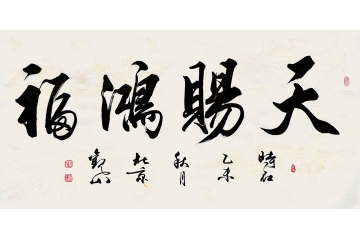 天賜鴻福
時在
乙未
秋月
北京